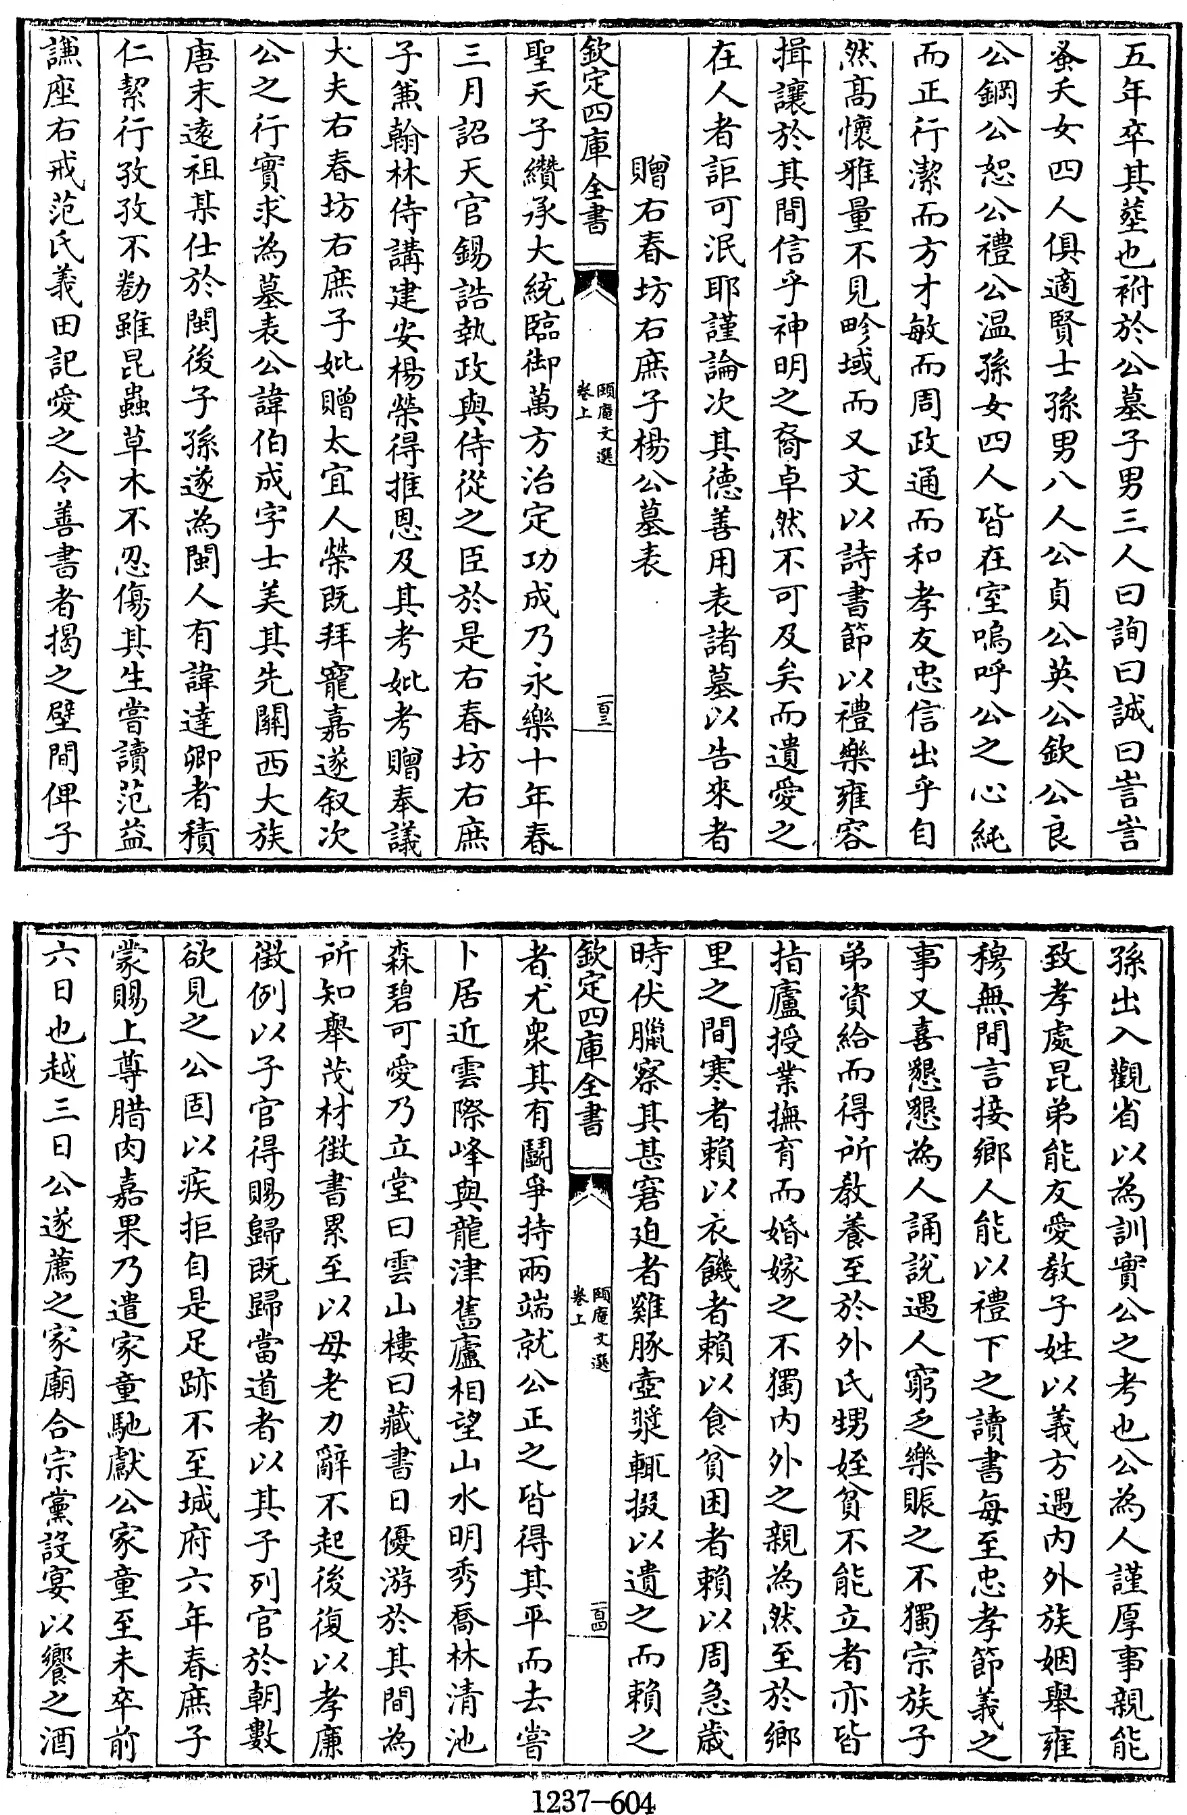 五年卒其塟也祔於公墓子男三人曰詢曰誠曰訔訔
蚤夭女四人俱適賢士孫男八人公貞公英公欽公良
公鋼公恕公禮公温孫女四人皆在室嗚呼公之心純
而正行潔而方才敏而周政通而和孝友忠信出乎自
然髙懷雅量不見畛域而又文以詩書節以禮樂雍容
揖讓於其間信乎神明之裔卓然不可及矣而遺愛之
在人者詎可泯耶謹論次其德善用表諸墓以告來者
贈右春坊右庶子楊公墓表
欽定四庫全書
頤庵文選
卷上
一百三
聖天子纘承大統臨御萬方治定功成乃永樂十年春
三月詔天官錫誥執政與侍從之臣於是右春坊右庶
子兼翰林侍講建安楊榮得推恩及其考妣考贈奉議
大夫右春坊右庶子妣贈太宜人榮既拜寵嘉遂叙次
公之行實求為墓表公諱伯成字士美其先關西大族
唐末遠祖某仕於閩後子孫遂為閩人有諱達卿者積
仁絜行孜孜不勌雖昆蟲草木不忍傷其生嘗讀范益
謙座右戒范氏義田記愛之令善書者揭之壁間俾子
孫出入觀省以為訓實公之考也公為人謹厚事親能
致孝處昆弟能友愛教子姓以義方遇内外族姻舉雍
穆無間言接鄉人能以禮下之讀書每至忠孝節義之
事又喜懇懇為人誦說遇人窮乏樂賑之不獨宗族子
弟資給而得所教養至於外氏甥姪貧不能立者亦皆
指廬授業撫育而婚嫁之不獨内外之親為然至於鄉
里之間寒者賴以衣饑者賴以食貧困者賴以周急歲
時伏臘察其甚窘迫者雞豚壺漿輒掇以遺之而賴之
欽定四庫全書
頤庵文選
卷上
一百四
者尤衆其有鬬爭持兩端就公正之皆得其平而去嘗
卜居近雲際峰與龍津舊廬相望山水明秀喬林清池
森碧可愛乃立堂曰雲山樓曰藏書日優游於其間為
所知舉茂材徴書累至以母老力辭不起後復以孝廉
徴例以子官得賜歸既歸當道者以其子列官於朝數
欲見之公固以疾拒自是足跡不至城府六年春庶子
蒙賜上尊腊肉嘉果乃遣家童馳獻公家童至未卒前
六日也越三日公遂薦之家廟合宗黨設宴以饗之酒
1237-604